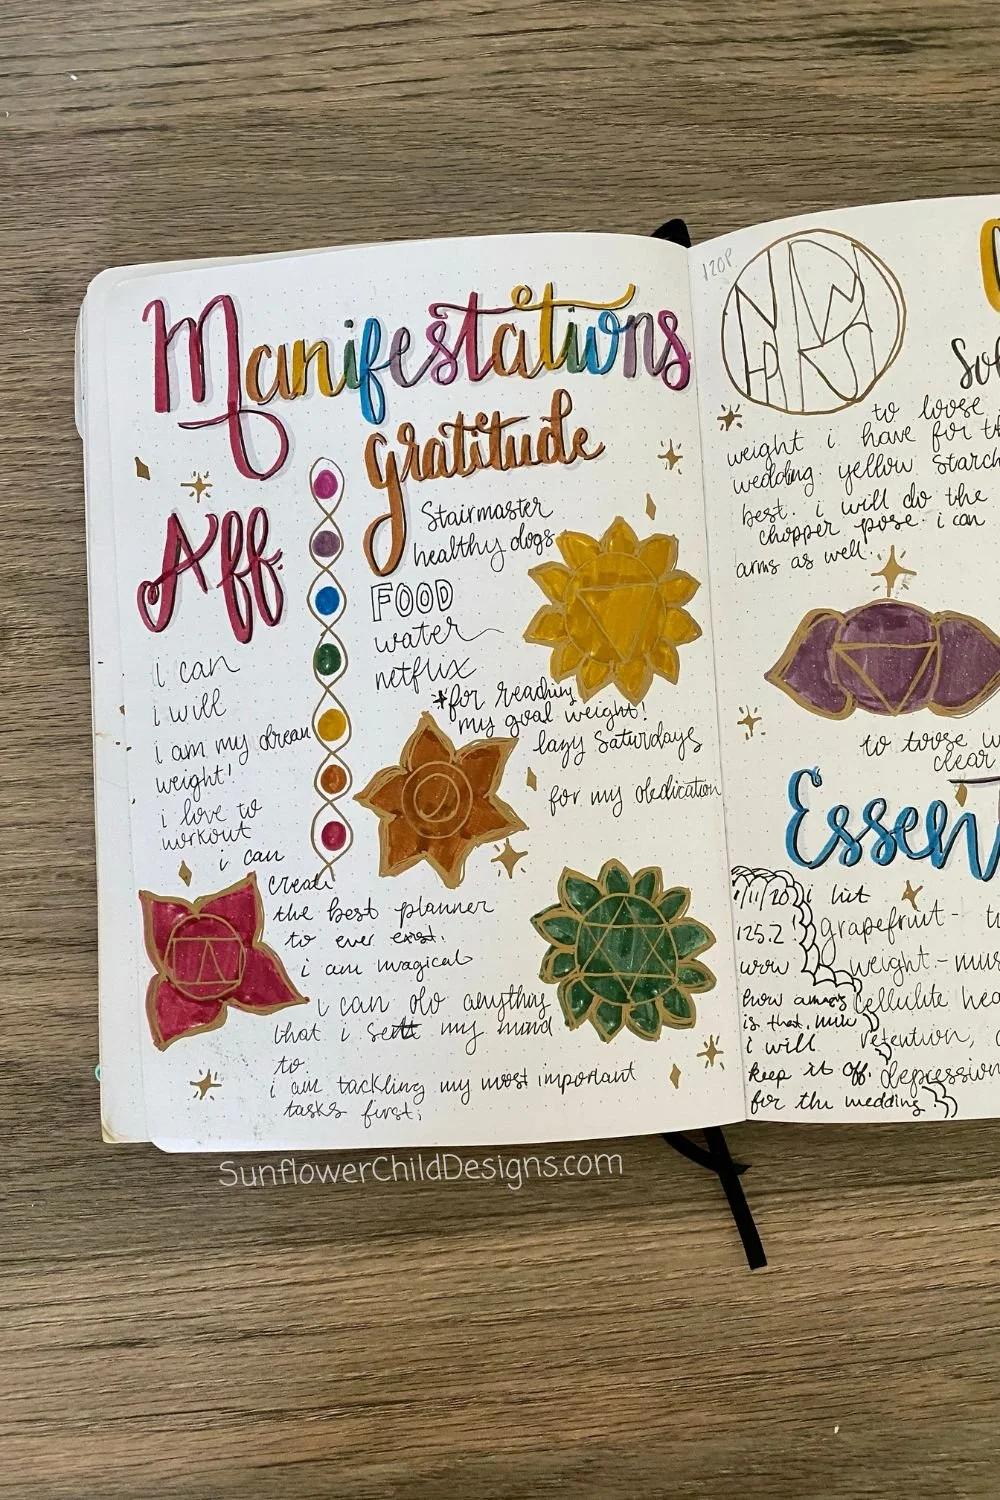 Manifestations
Aff.
i can
i will
i am my dream
weight!
i love to
workout
i can
create
the best planner
to ever exist.
i am magical
i can do anything
that i sett my mind
to
i am tackling my most important
tasks first.
gratitude
Stairmaster
healthy dogs
FOOD
water
netflix
*for reaching
my goal weight!
lazy Saturdays
for my dedication
120P
to loose
weight i have for th
wedding. yellow starch
best. i will do the
chopper pose. i can
arms as well.
to
clear
Essen
1/11/20 i hit
125.2!
wow
how amazing
is that. now
i will
keep it off.
for the wedding
grapefruit-
weight-mus
cellulite hea
retention,
depression
SunflowerChildDesigns.com